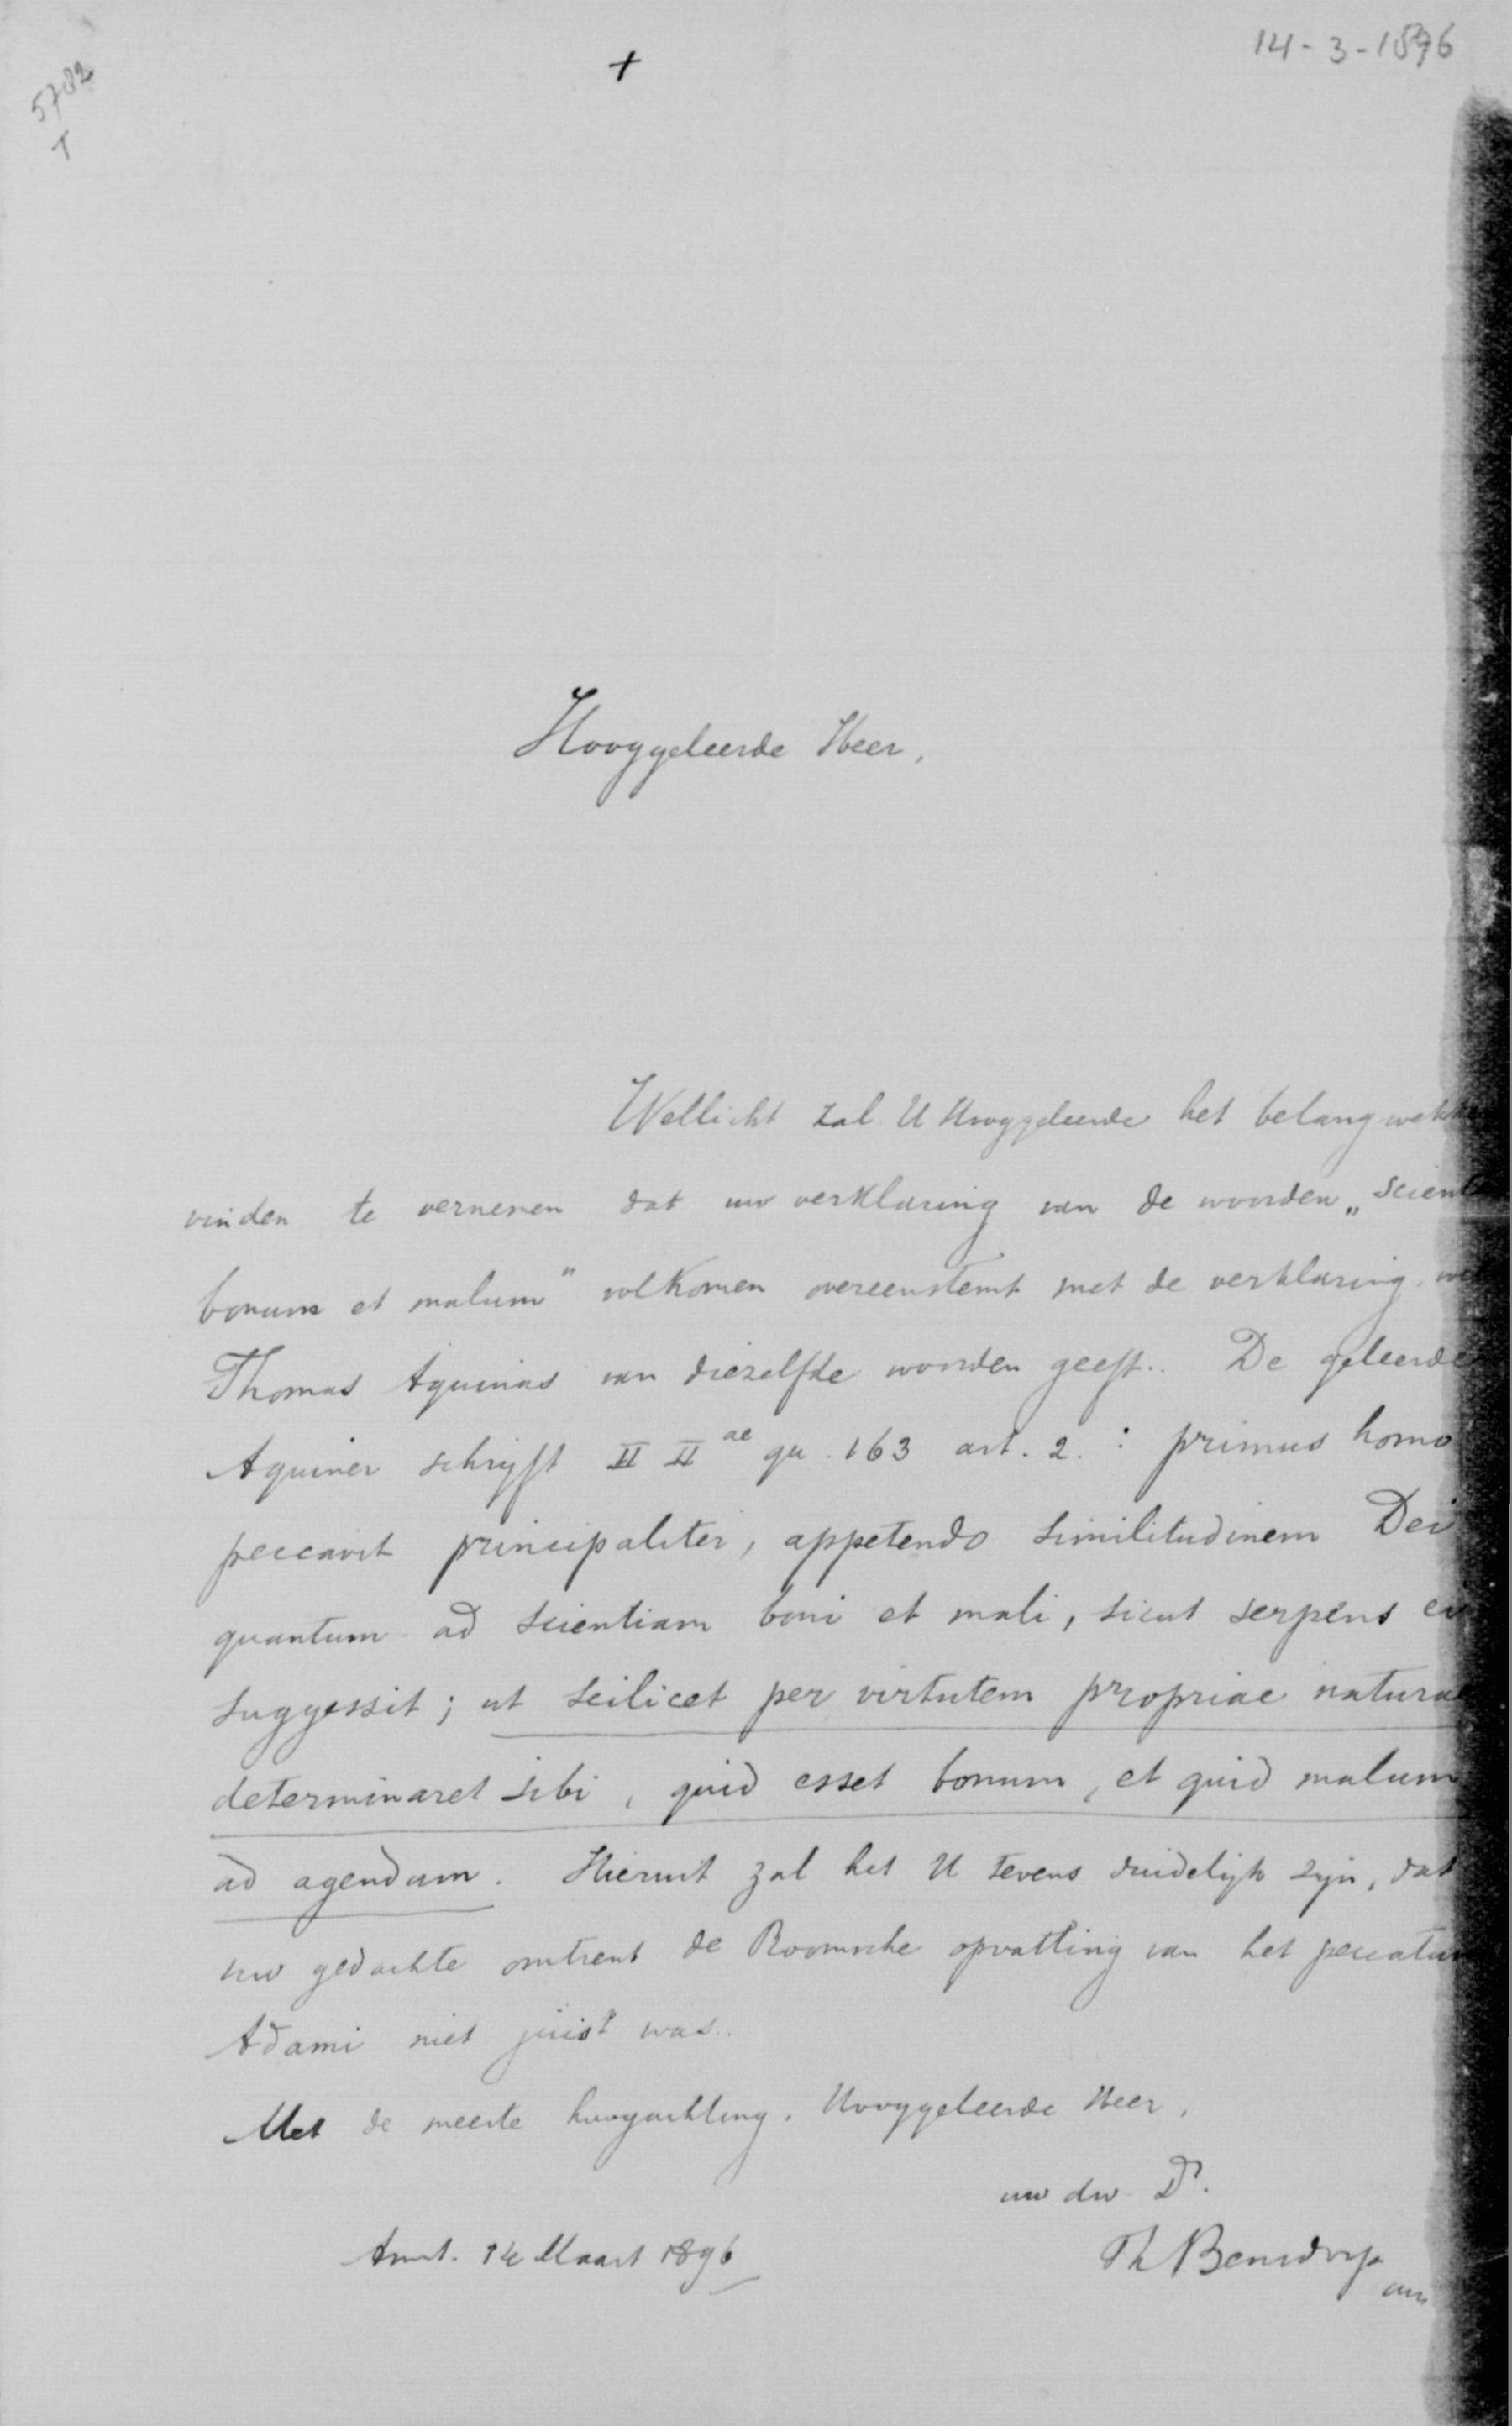 14-3-1896
5782
T
+
Hooggeleerde Heer,
Wellicht zal U Hooggeleerde het belangwekke
vinden te vernemen dat uw verklaring van de woorden „scient
bonum et malum" volkomen overeenstemt met de verklaring, we
Thomas Aquinas van diezelfde woorden geeft. De geleerde
Aquiner schrijft II II ae qu. 163 art. 2. : primus homo
peccavit principaliter, appetendo similitudinem Dei
quantum ad scientiam boni et mali, sicut serpens ei
suggessit; ut scilicet per virtutem propriae naturae
determinaret sibi, quid esset bonum, et quid malum
ad agendum. Hieruit zal het U tevens duidelijk zijn, dat
uw gedachte omtrent de Roomsche opvatting van het peccatum
Adami niet juist was.
Met de meeste hoogachting, Hooggeleerde Heer,
uw dw. Dr.
Amst. 14 Maart 1896
Th Bensdorp